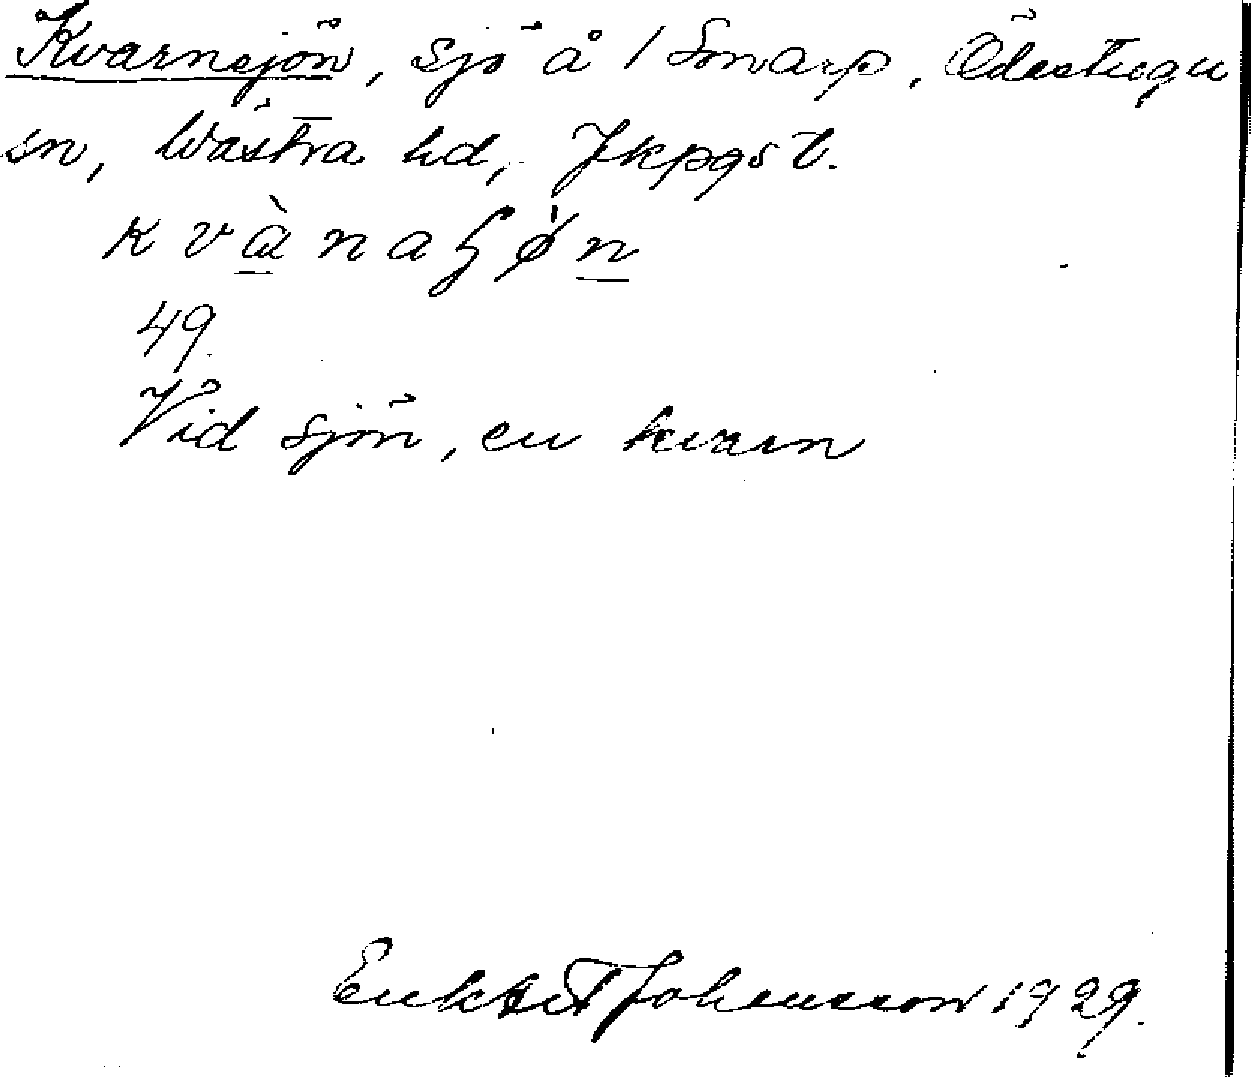 Kvarnsjön, sjö å 1 Smarp, Ödestugu
sn, Wästra hd, Jkpgs l.
kvànaʃǿn
49
Vid sjön, en kvarn
Johansson 1929.